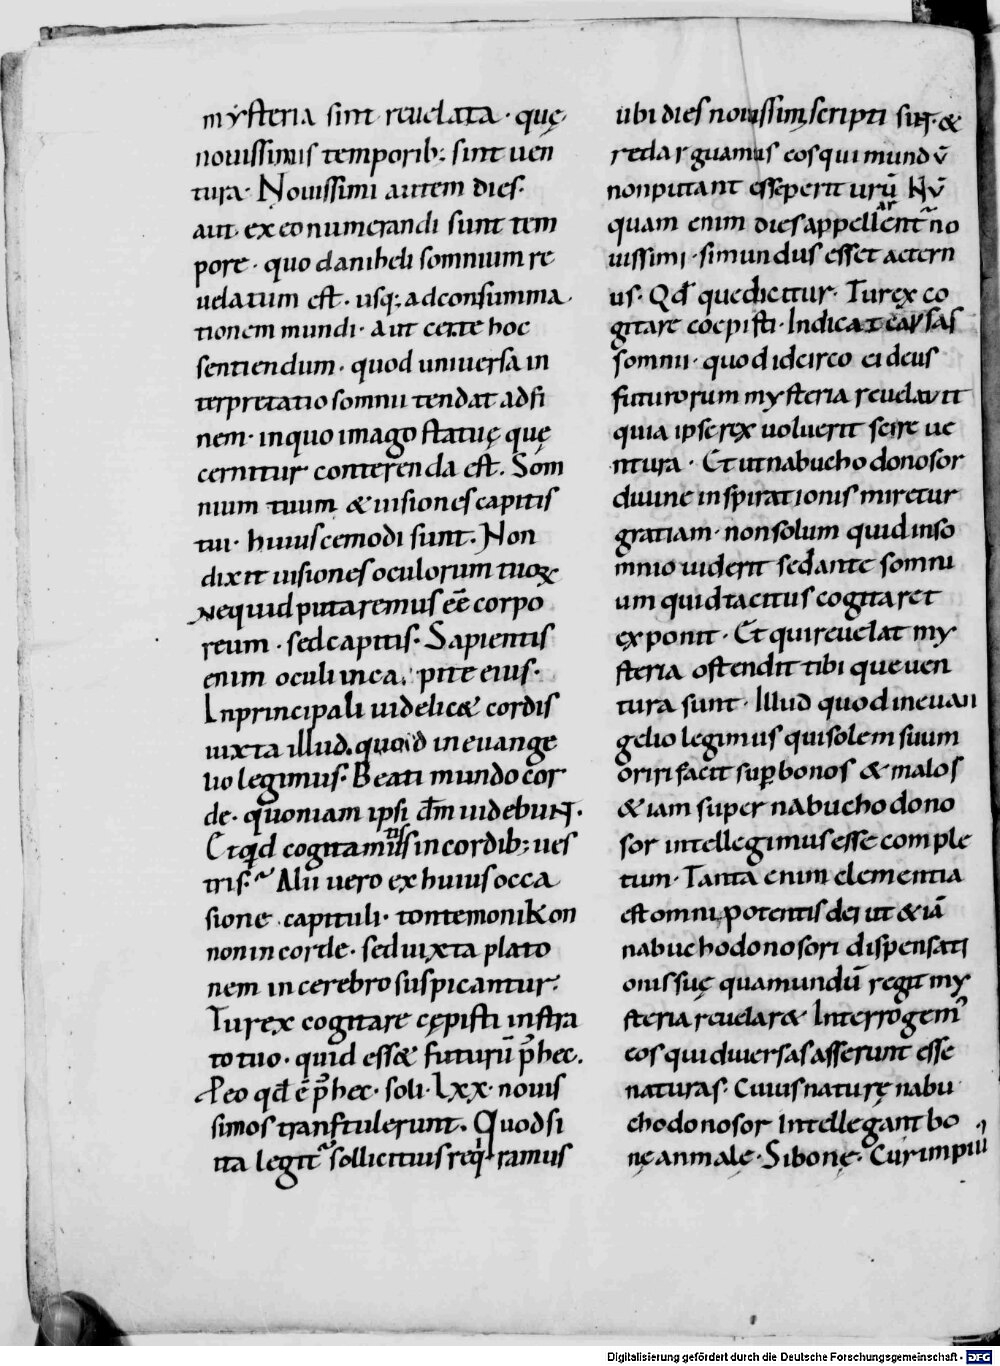 mysteria sint reuelata · quę
nouissimis temporib; sint uen
tura · Nouissimi autem dies ·
aut ex eo numerandi sunt tem
pore · quo daniheli somnium re
uelatum est · usq; adconsumma
tionem mundi · aut certe hoc
sentiendum · quod uniuersa in
terpretatio somnii tendat adfi
nem · inquo imago statuę quę
cernitur conterenda est. Som
nium tuum & uisiones capitis
tui · huiuscemodi sunt. Non
dixit uisiones oculorum tuoꝝ
Nequid putaremus eēe corpo
reum · sed capitis · Sapientis
enim oculi in capite eius ·
In principali uidelic& cordis
iuxta illud. quod in euange
lio legimus · Beati mundo cor
de · quoniam ipsi dm̄ uidebunt ·
Et qđ cogitatis in cordib; ues
tris · Alii uero ex huius occa
sione capituli · tontemonikon
non in corde · sed iuxta plato
nem in cerebro suspicantur ·
Tu rex cogitare cępisti in stra
to tuo · quid ess& futurū p̄ hec.
Peo qđ ē p̄ hec · soli · lxx · nouis
simos transtulerunt. Quod si
ita legit̄ sollicitius reqiramus
ubi dies nouissimi scripti sint · &
redarguamus eos qui mundū
non putant esse periturū Nū
quam enim dies appellarent̄ no
uissimi · si mundus esset aetern
us · Qđ que dicitur · Tu rex co
gitare coepisti · Indicat causas
somnii · quod idcirco ei deus
futurorum mysteria reuelauit
quia ipse rex uoluerit scire ue
ntura · Et ut nabuchodonosor
diuine inspirationis miretur
gratiam · non solum quid in so
mnio uiderit sed ante somni
um quid tacitus cogitaret
exponit · Et qui reuelat my
steria ostendit tibi que uen
tura sunt · Illud quod in euan
gelio legimus qui solem suum
oriri facit sup̱ bonos & malos
&iam super nabuchodono
sor intellegimus esse comple
tum · Tanta enim clementia
est omnipotentis dei ut &iā
nabuchodonosori dispensati
onis suę qua mundū regit my
steria reuelar& Interrogem'
eos qui diuersas asserunt esse
naturas · Cuius naturę nabu
chodonosor Intellegant bo
nę an malę · Si bonę · Cur impiu'
Digitalisierung gefördert durch die Deutsche Forschungsgemeinschaft - DFG